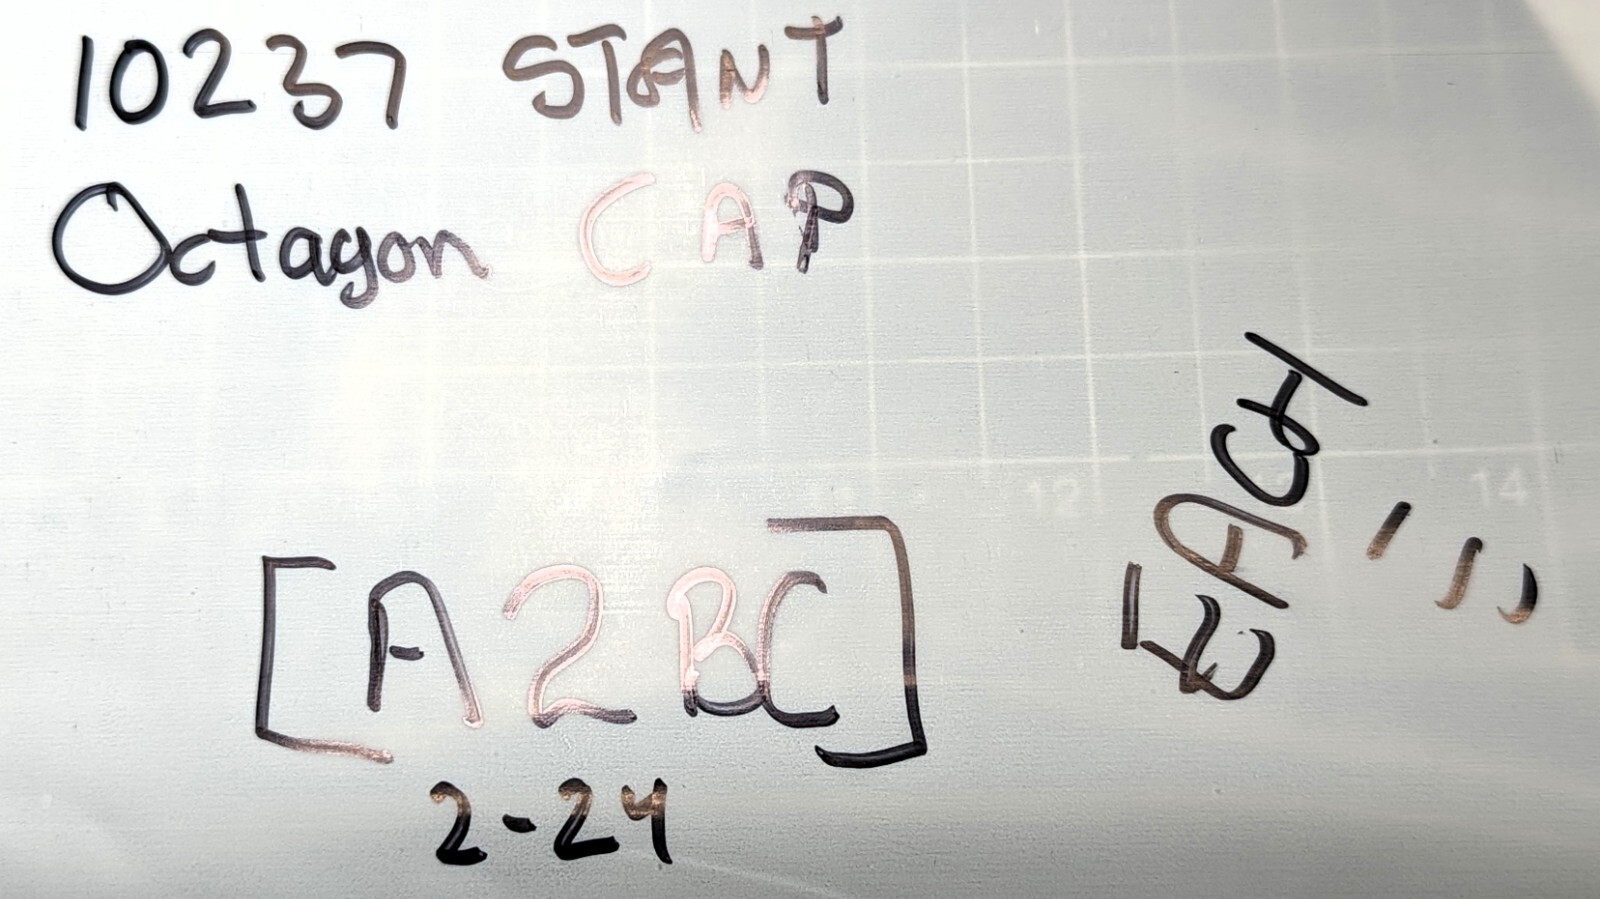 10237 STANT
Octagon CAP
EACH
12 14
[A2BC]
2-24